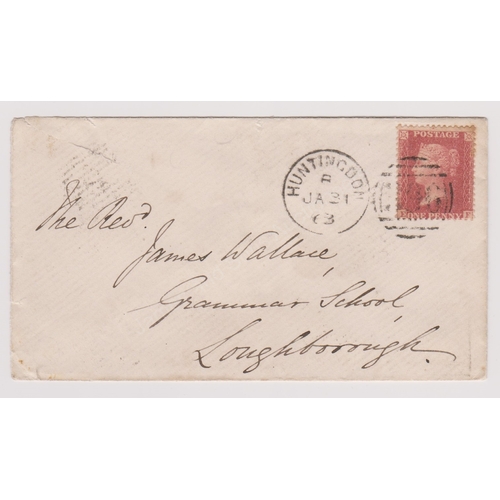 POSTAGE
ONE PENNY
HUNTINGDON
JA 31
63
The Revd.
James Wallace,
Grammar School,
Loughborough.